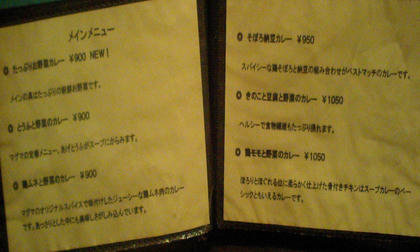 メインメニュー
たっぷりお野菜カレー ¥900 NEW!
メインの具はたっぷりの新鮮お野菜です。
とうふと野菜のカレー ¥900
マグマの定番メニュー。あげとうふがスープにからみます。
鶏ムネと野菜のカレー ¥900
マグマのオリジナルスパイスで味付けしたジューシーな鶏ムネ肉のカレー
です。あっさりとした中にも美味しさがしみ込んでいます。
そぼろ納豆カレー ¥950
スパイシーな鶏そぼろと納豆の組み合わせがベストマッチのカレーです。
きのこと豆腐と野菜のカレー ¥1050
ヘルシーで食物繊維もたっぷり摂れます。
鶏モモと野菜のカレー ¥1050
ほろりとほぐれる位に柔らかく仕上げた骨付きチキンはスープカレーのベー
シックともいえるカレーです。